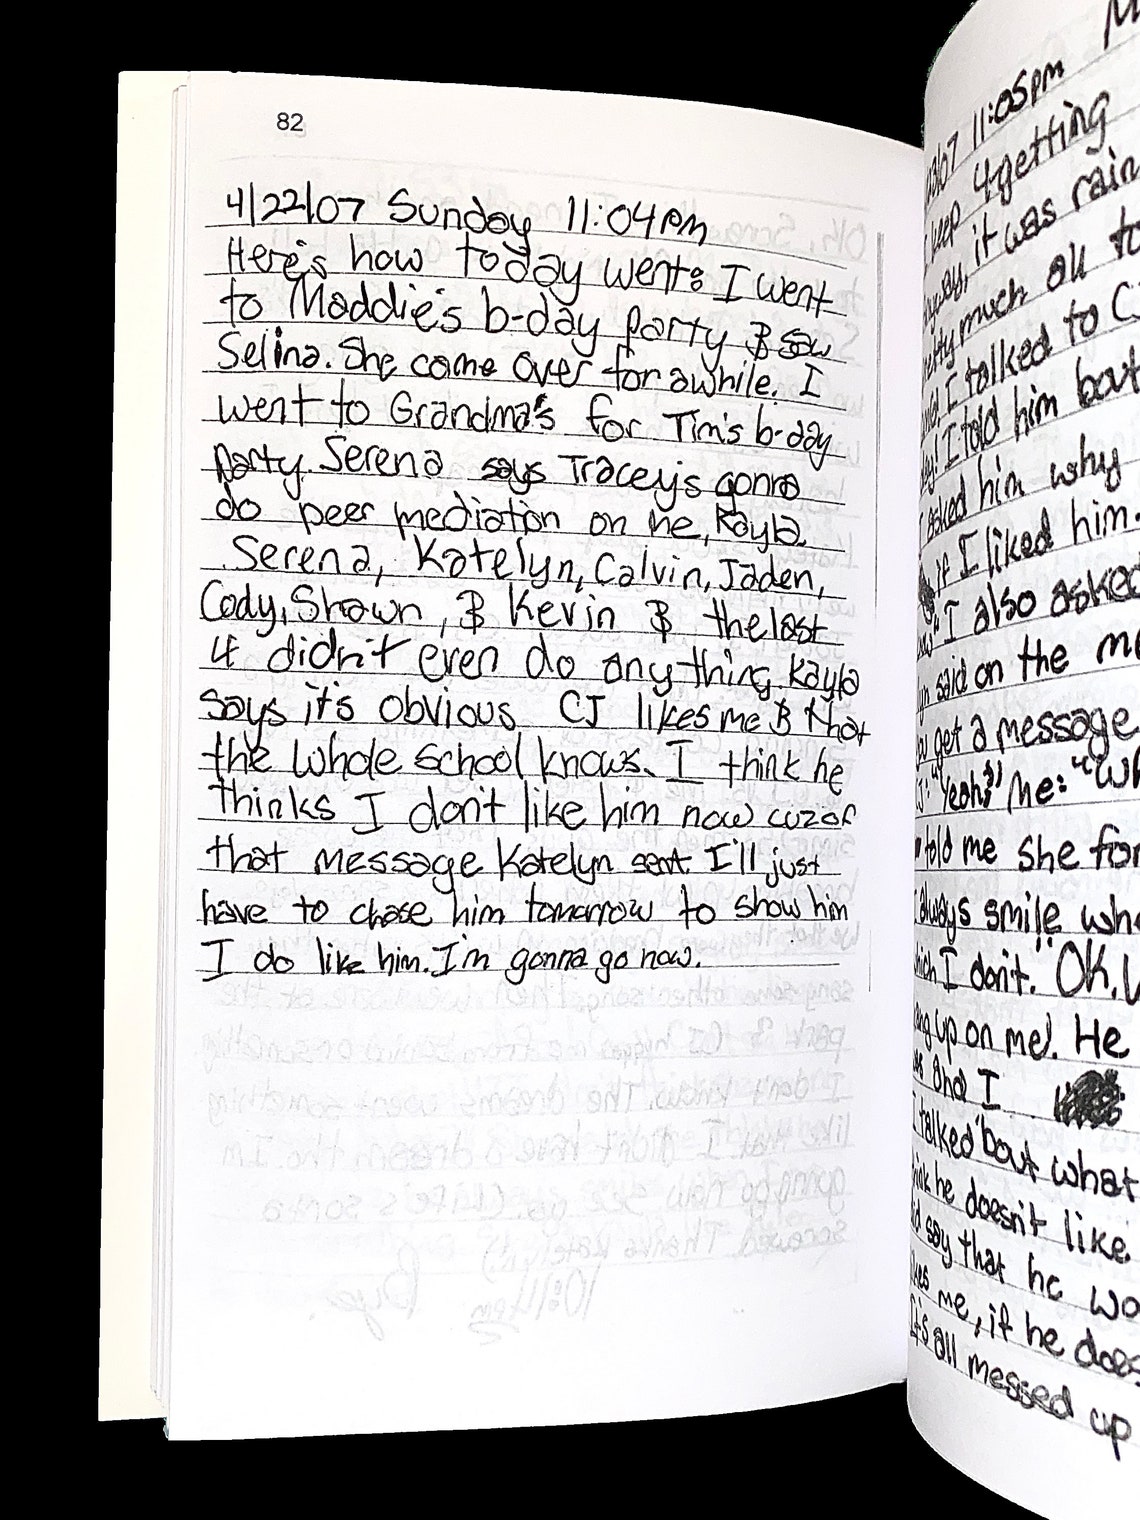 82
4/22/07 Sunday 11:04pm
Here's how today went: I went
to Maddie's b-day party & saw
Selina. She came over for awhile. I
went to Grandma's for Tim's b-day
party. Serena says Tracey's gonna
do peer mediation on me, Kayla
Serena, Katelyn, Calvin, Jaden,
Cody, Shawn, & Kevin & the last
4 didn't even do anything. Kayla
says it's obvious CJ likes me & that
the whole school knows. I think he
thinks I don't like him now cuz of
that message Katelyn sent. I'll just
have to chase him tomorrow to show him
I do like him. I'm gonna go now.
11:05pm
keep 4getting
it was
much all
I talked to
I told him bout
asked him why
if I liked him.
I also asked
said on the
get a message
"Yeah?" Me:
told me she
always smile
I don't. "OK,
up on me). He
and I
talked 'bout what
he doesn't like
say that he
me, if he does
It's all messed up